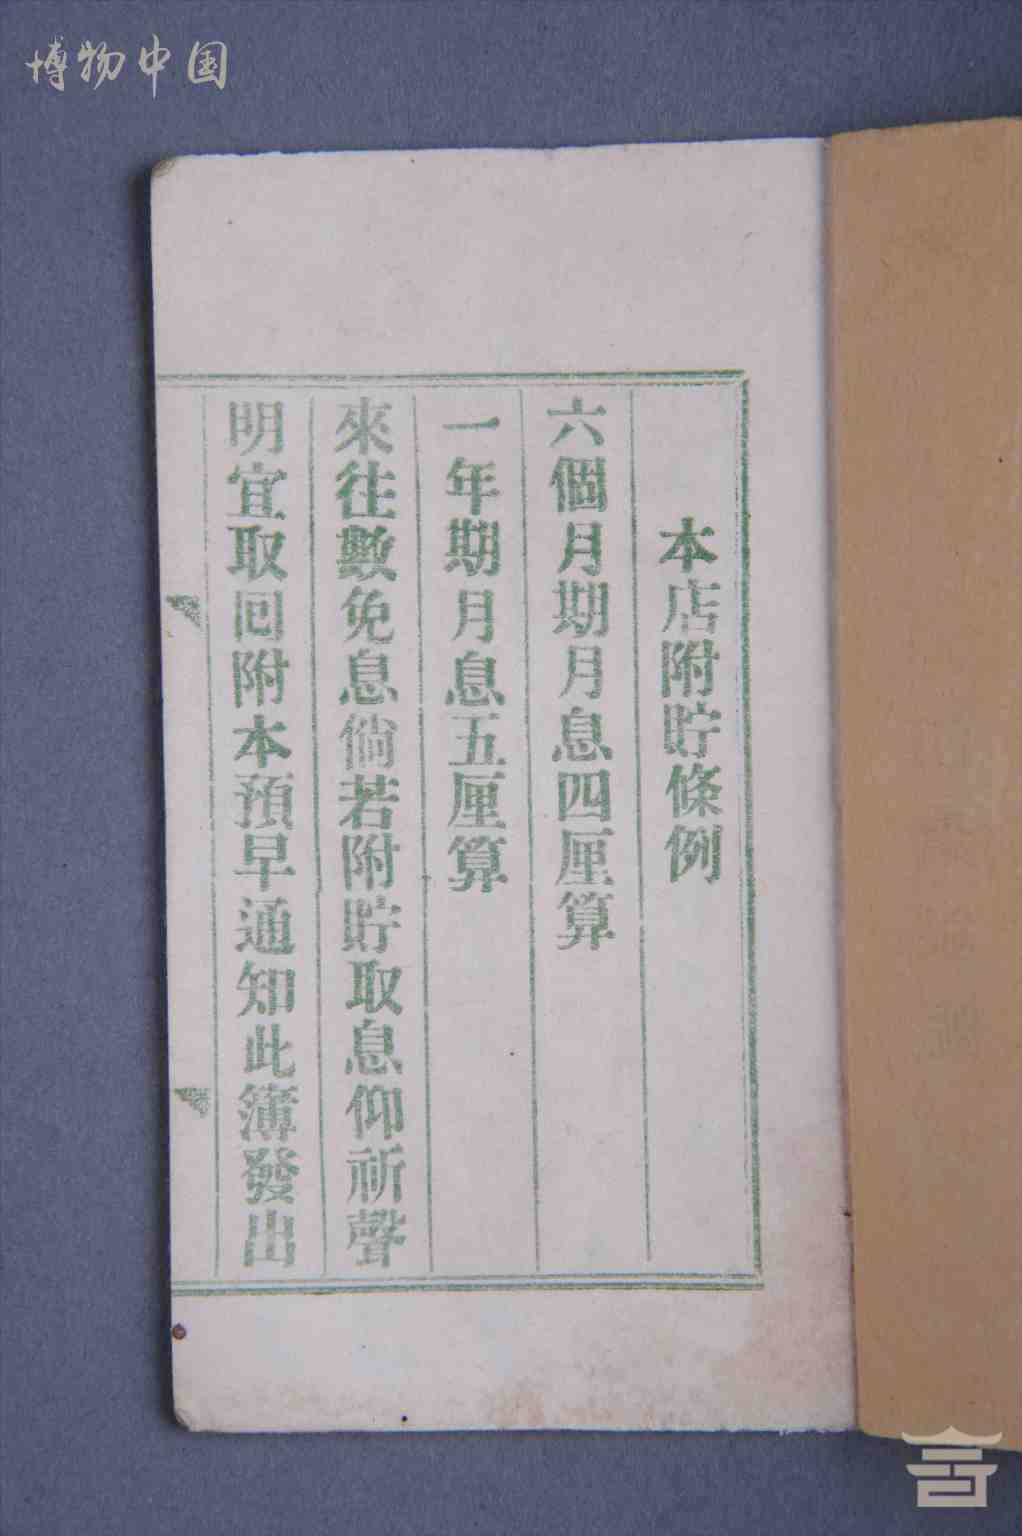 博物中国
本店附貯條例
六個月期月息四厘算
一年期月息五厘算
來往數免息倘若附貯取息仰祈聲
明宜取回附本預早通知此簿發出